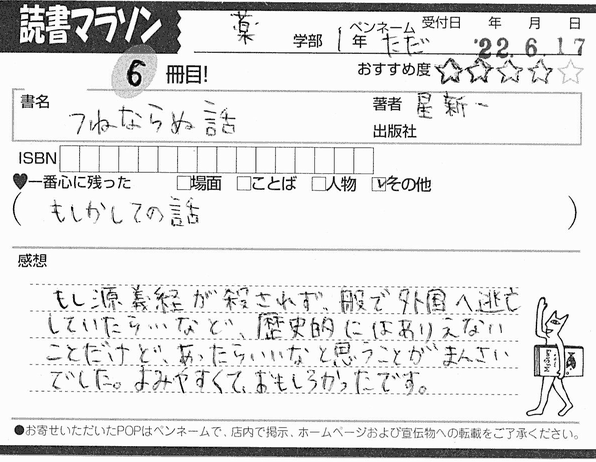 読書マラソン
薬 学部 1年 ペンネーム ただ 受付日 年 月 日
'22.6.17
6 冊目!
おすすめ度 ★★★★☆
書名 つねならぬ話
著者 星新一
出版社
ISBN
♥一番心に残った □場面 □ことば □人物 ☑その他
(もしかしての話)
感想
もし源義経が殺されず、船で外国へ逃亡
していたら…など、歴史的にはありえない
ことだけど、あったらいいなと思うことがまんさい
でした。よみやすくて、おもしろかったです。
●お寄せいただいたPOPはペンネームで、店内で掲示、ホームページおよび宣伝物への転載をご了承ください。